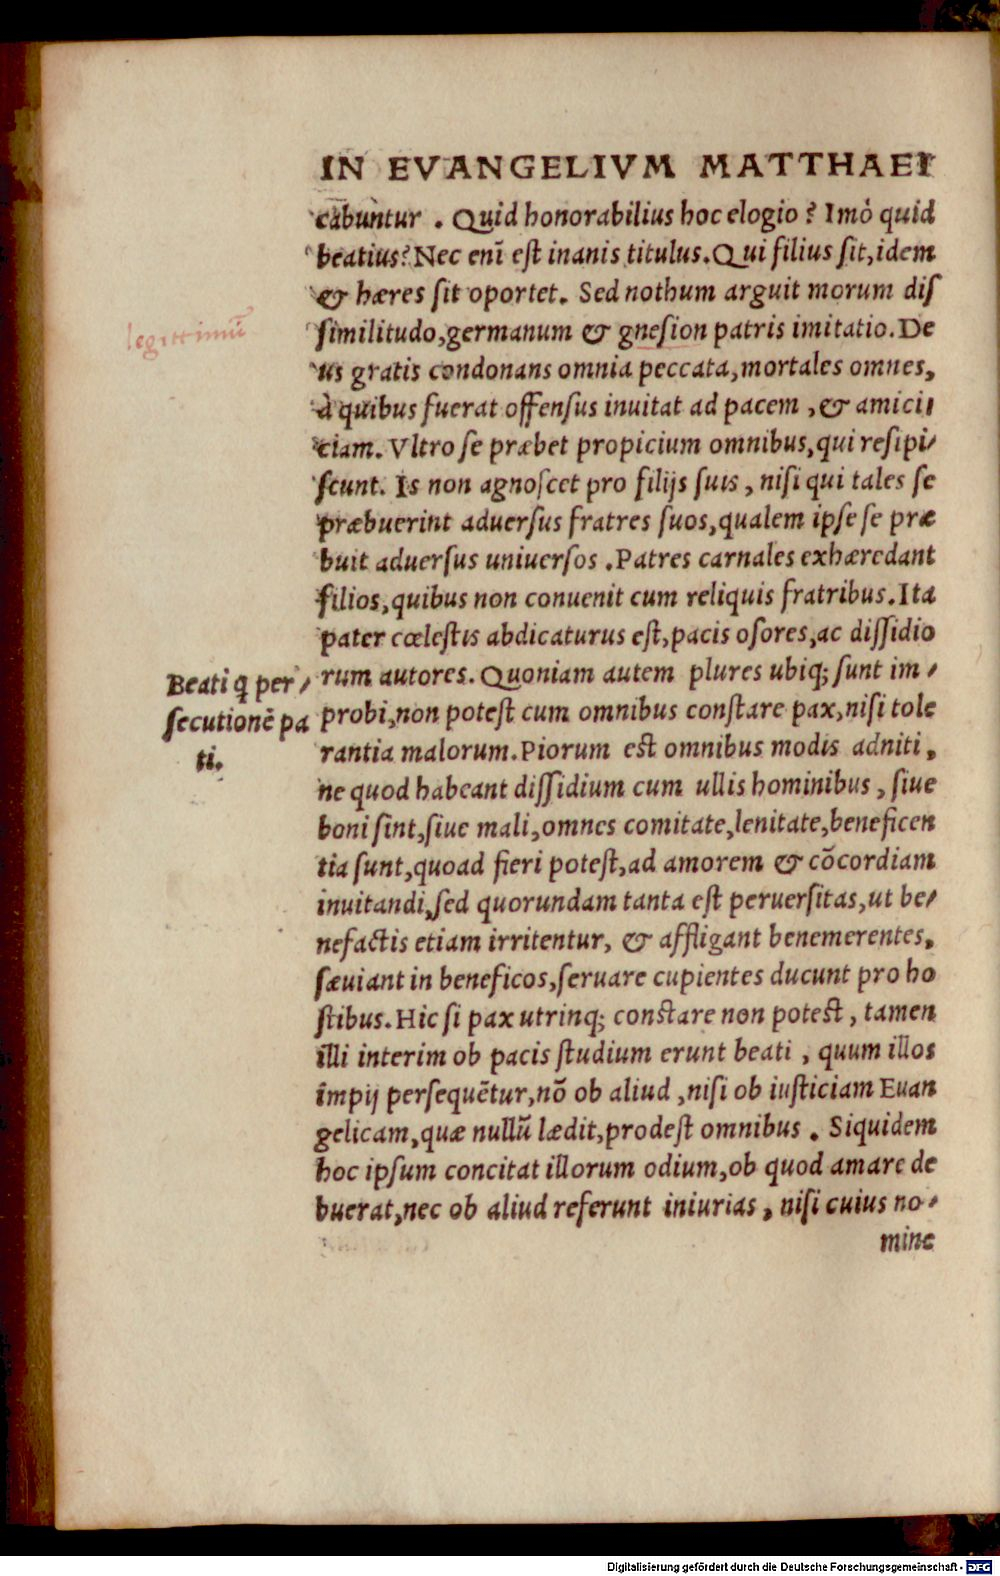 IN EVANGELIVM MATTHAEI
cabuntur . Quid honorabilius hoc elogio ? Imò quid
beatius? Nec enī est inanis titulus. Qui filius sit, idem
& hæres sit oportet. Sed nothum arguit morum dis
similitudo, germanum & gnesion patris imitatio. De
legittimū
us gratis condonans omnia peccata, mortales omnes,
à quibus fuerat offensus inuitat ad pacem , & amici/
ciam. Vltro se præbet propicium omnibus, qui resipi/
scunt. Is non agnoscet pro filijs suis , nisi qui tales se
præbuerint aduersus fratres suos, qualem ipse se præ
buit aduersus uniuersos . Patres carnales exhæredant
filios, quibus non conuenit cum reliquis fratribus. Ita
pater cœlestis abdicaturus est, pacis osores, ac dissidio
rum autores. Quoniam autem plures ubiq; sunt im/
Beati q per/
secutionē pa
ti.
probi, non potest cum omnibus constare pax, nisi tole
rantia malorum. Piorum est omnibus modis adniti ,
ne quod habeant dissidium cum ullis hominibus , siue
boni sint, siue mali, omnes comitate, lenitate, beneficen
tia sunt, quoad fieri potest, ad amorem & cōcordiam
inuitandi, sed quorundam tanta est peruersitas, ut be/
nefactis etiam irritentur, & affligant benemerentes,
sæuiant in beneficos, seruare cupientes ducunt pro ho
stibus. Hic si pax utrinq; constare non potest , tamen
illi interim ob pacis studium erunt beati , quum illos
impij persequētur, nō ob aliud , nisi ob iusticiam Euan
gelicam, quæ nullū lædit, prodest omnibus . Siquidem
hoc ipsum concitat illorum odium, ob quod amare de
buerat, nec ob aliud referunt iniurias , nisi cuius no/
mine
Digitalisierung gefördert durch die Deutsche Forschungsgemeinschaft - DFG